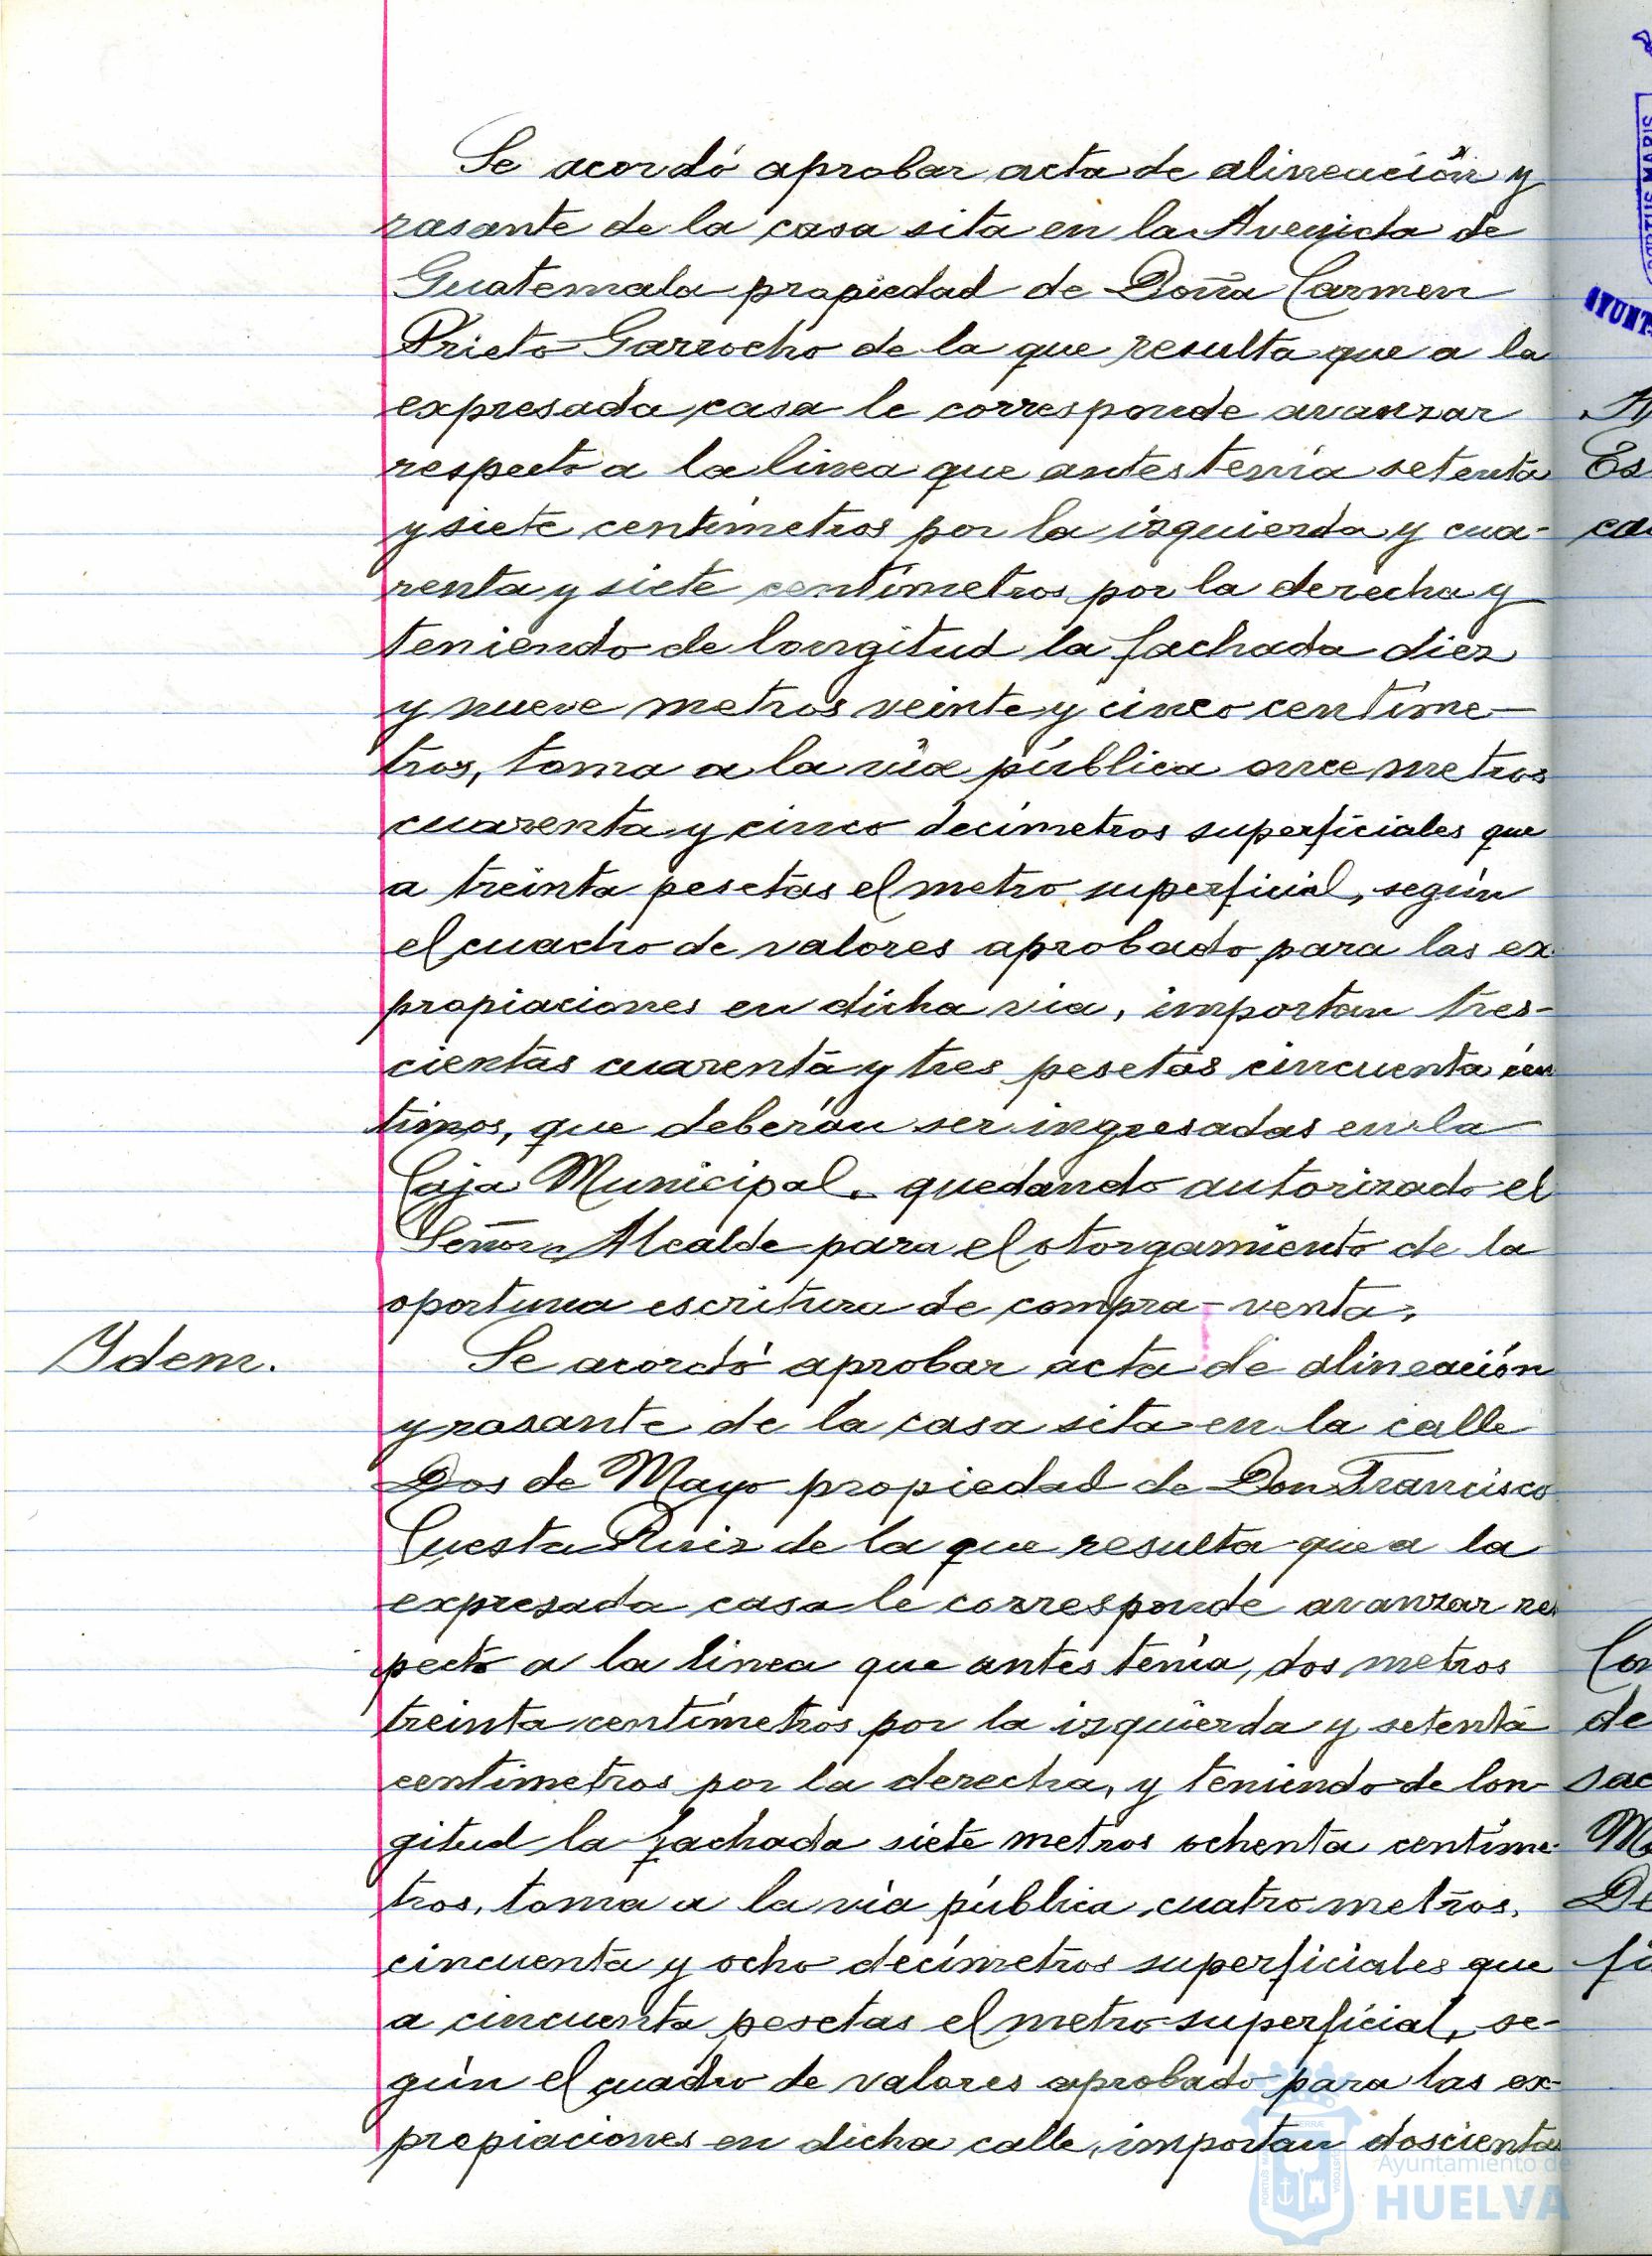 Se acordó aprobar acta de alineación y
rasante de la casa sita en la Avenida de
Guatemala propiedad de Doña Carmen
Prieto Garrocho de la que resulta que a la
expresada casa le corresponde avanzar
respecto a la linea que antes tenía setenta
y siete centímetros por la izquierda y cua-
renta y siete centímetros por la derecha y
teniendo de longitud la fachada diez
y nueve metros veinte y cinco centíme-
tros, toma a la vía pública once metros
cuarenta y cinco decímetros superficiales que
a treinta pesetas el metro superficial, según
el cuadro de valores aprobado para las ex-
propiaciones en dicha via, importan tres-
cientas cuarenta y tres pesetas cincuenta cén
timos, que deberán ser ingresadas en la
Caja Municipal. quedando autorizado el
Señor Alcalde para el otorgamiento de la
oportuna escritura de compra-venta.
Ydem.
Se acordó aprobar acta de alineación
y rasante de la casa sita en la calle
Dos de Mayo propiedad de Don Francisco
Cuesta Ruiz de la que resulta que a la
expresada casa le corresponde avanzar res
pecto a la linea que antes tenía, dos metros
treinta centímetros por la izquierda y setenta
centímetros por la derecha, y teniendo de lon-
gitud la fachada siete metros ochenta centíme-
tros, toma a la vía pública, cuatro metros,
cincuenta y ocho decímetros superficiales que
a cincuenta pesetas el metro superficial, se-
gún el cuadro de valores aprobado para las ex-
propiaciones en dicha calle, importan doscientas
Ayuntamiento de
HUELVA
PORTUS MARIS
AYUNT
Es
de
sac